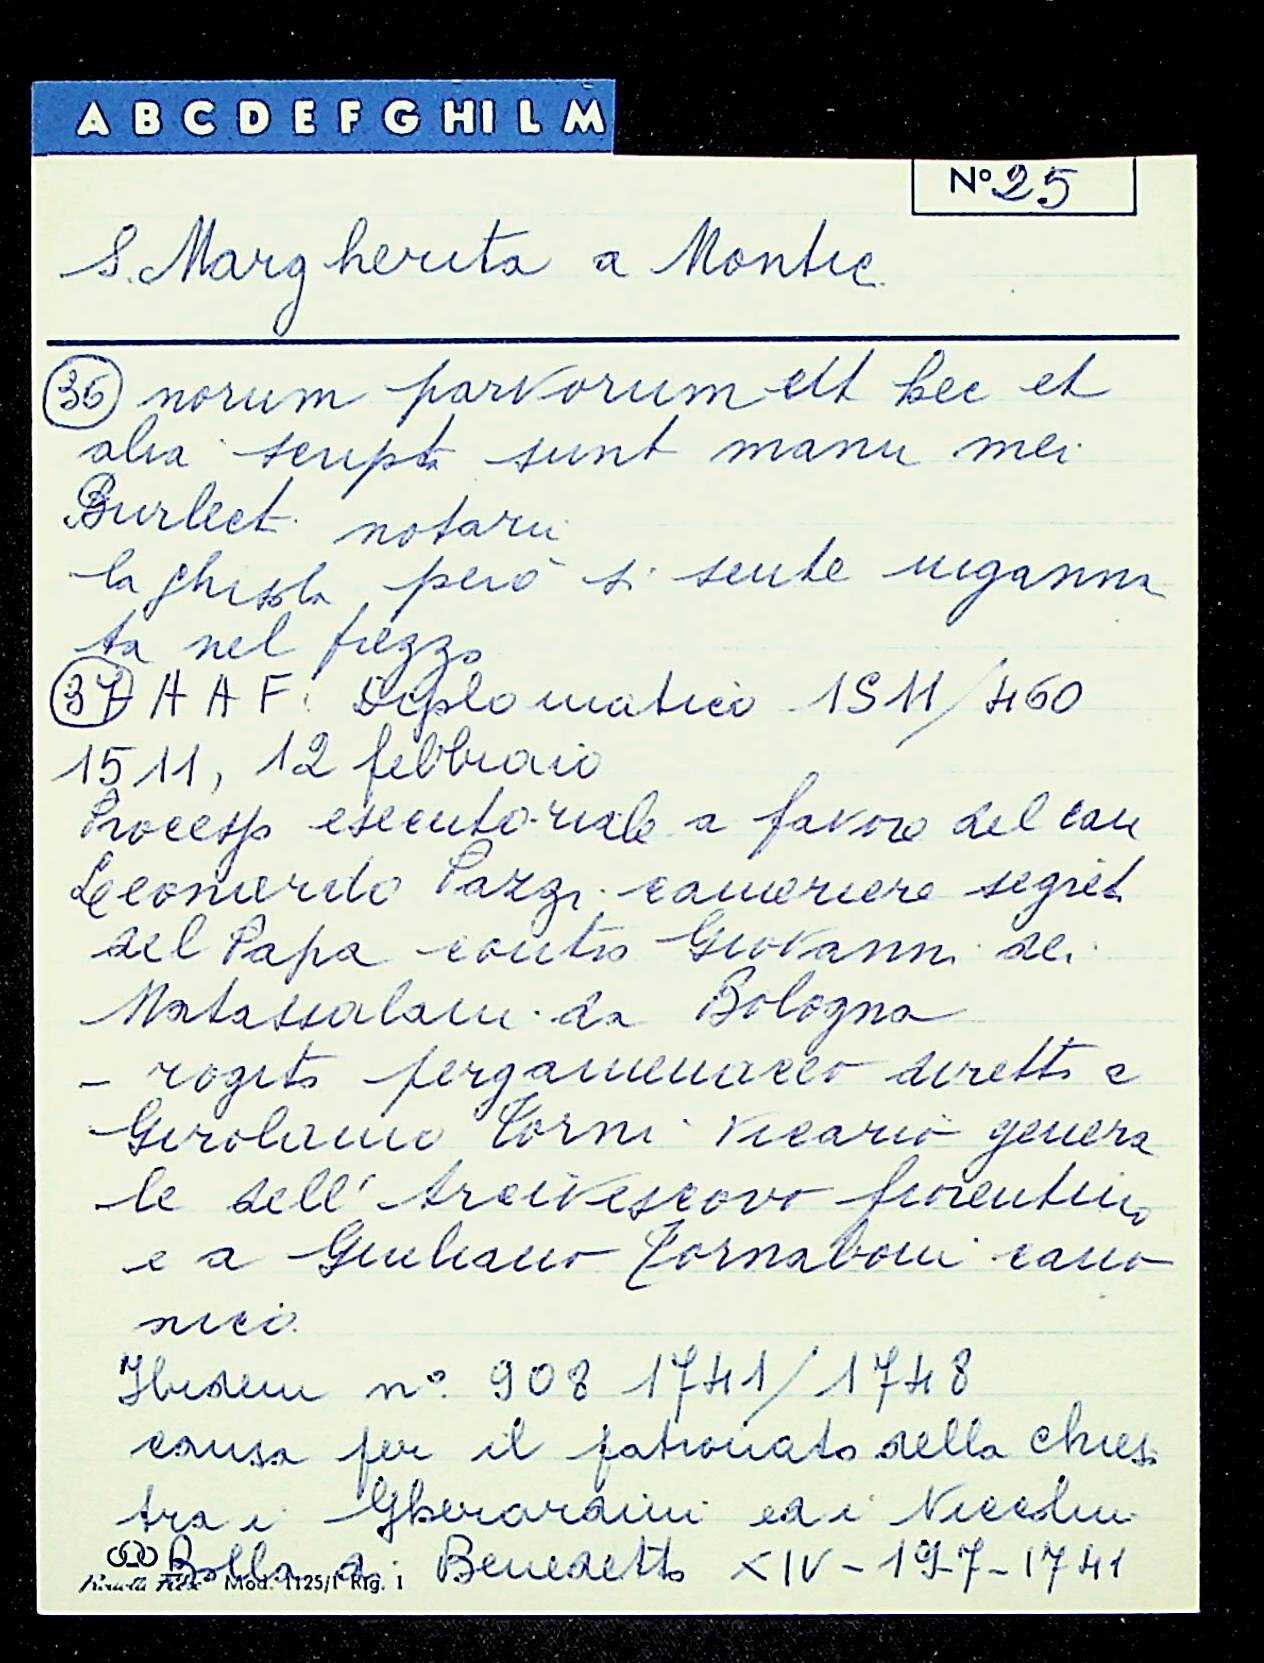 A B C D E F G H I L M
Nº 25
S. Margherita a Montic.
36 norum parvorum ett hec et
alia scripta sunt manu mei
Burlect. notarii
la Ghisola però si sente inganna
ta nel prezzo
37 A A F. Diplomatico 1511/460
1511, 12 febbraio
Processo esecutoriale a favore del can
Leonardo Pazzi cameriere segret
del Papa contro Giovanni dei
da Bologna
- rogito pergamenaceo diretto a
Girolamo Torni Vicario genera
le dell'Arcivescovo fiorentino
e a Giuliano Tornaboni cano
nico.
Ibidem nº. 908 1741/1748
causa per il patronato della chies.
tra i Gherardini ed i Niccolin
Bolla di Benedetto XIV - 19-7-1741
Mod. 1125/1 Rig. 1